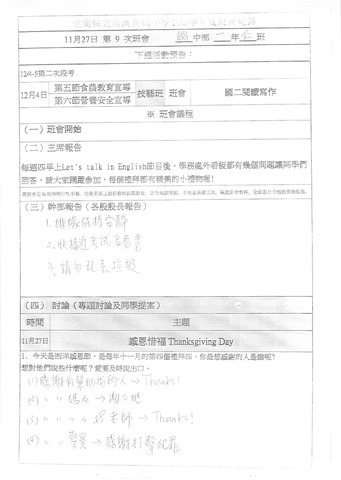 11月27日 第 9 次班會 國中部 二年 班
下週活動預告：
12/4-5第二次段考
12月4日 第五節食農教育宣導 第六節營養安全宣導 技藝班 班會 國二閱讀寫作
※ 班會議程
（一）班會開始
（二）主席報告
每週四早上Let's talk in English節目後，學務處外看板都有幾個問題讓同學們
回答，請大家踴躍參加，每個禮拜都有精美的小禮物喔！
（三）幹部報告（各股股長報告）
1.排隊保持安靜
3.請勿亂丟垃圾
（四）討論（專題討論及同學提案）
時間 主題
11月27日 感恩惜福 Thanksgiving Day
1. 今天是西洋感恩節，是每年十一月的第四個禮拜四。你最想感謝的人是誰呢?
想對他們說些什麼呢？愛要及時說出口。
(1) 感謝有幫助我的人→Thanks!
(2) 〃 〃 媽媽→謝謝她
(3) 〃 〃 〃 〃 老師→Thanks!
(4) 〃 〃 警察→感謝打擊犯罪